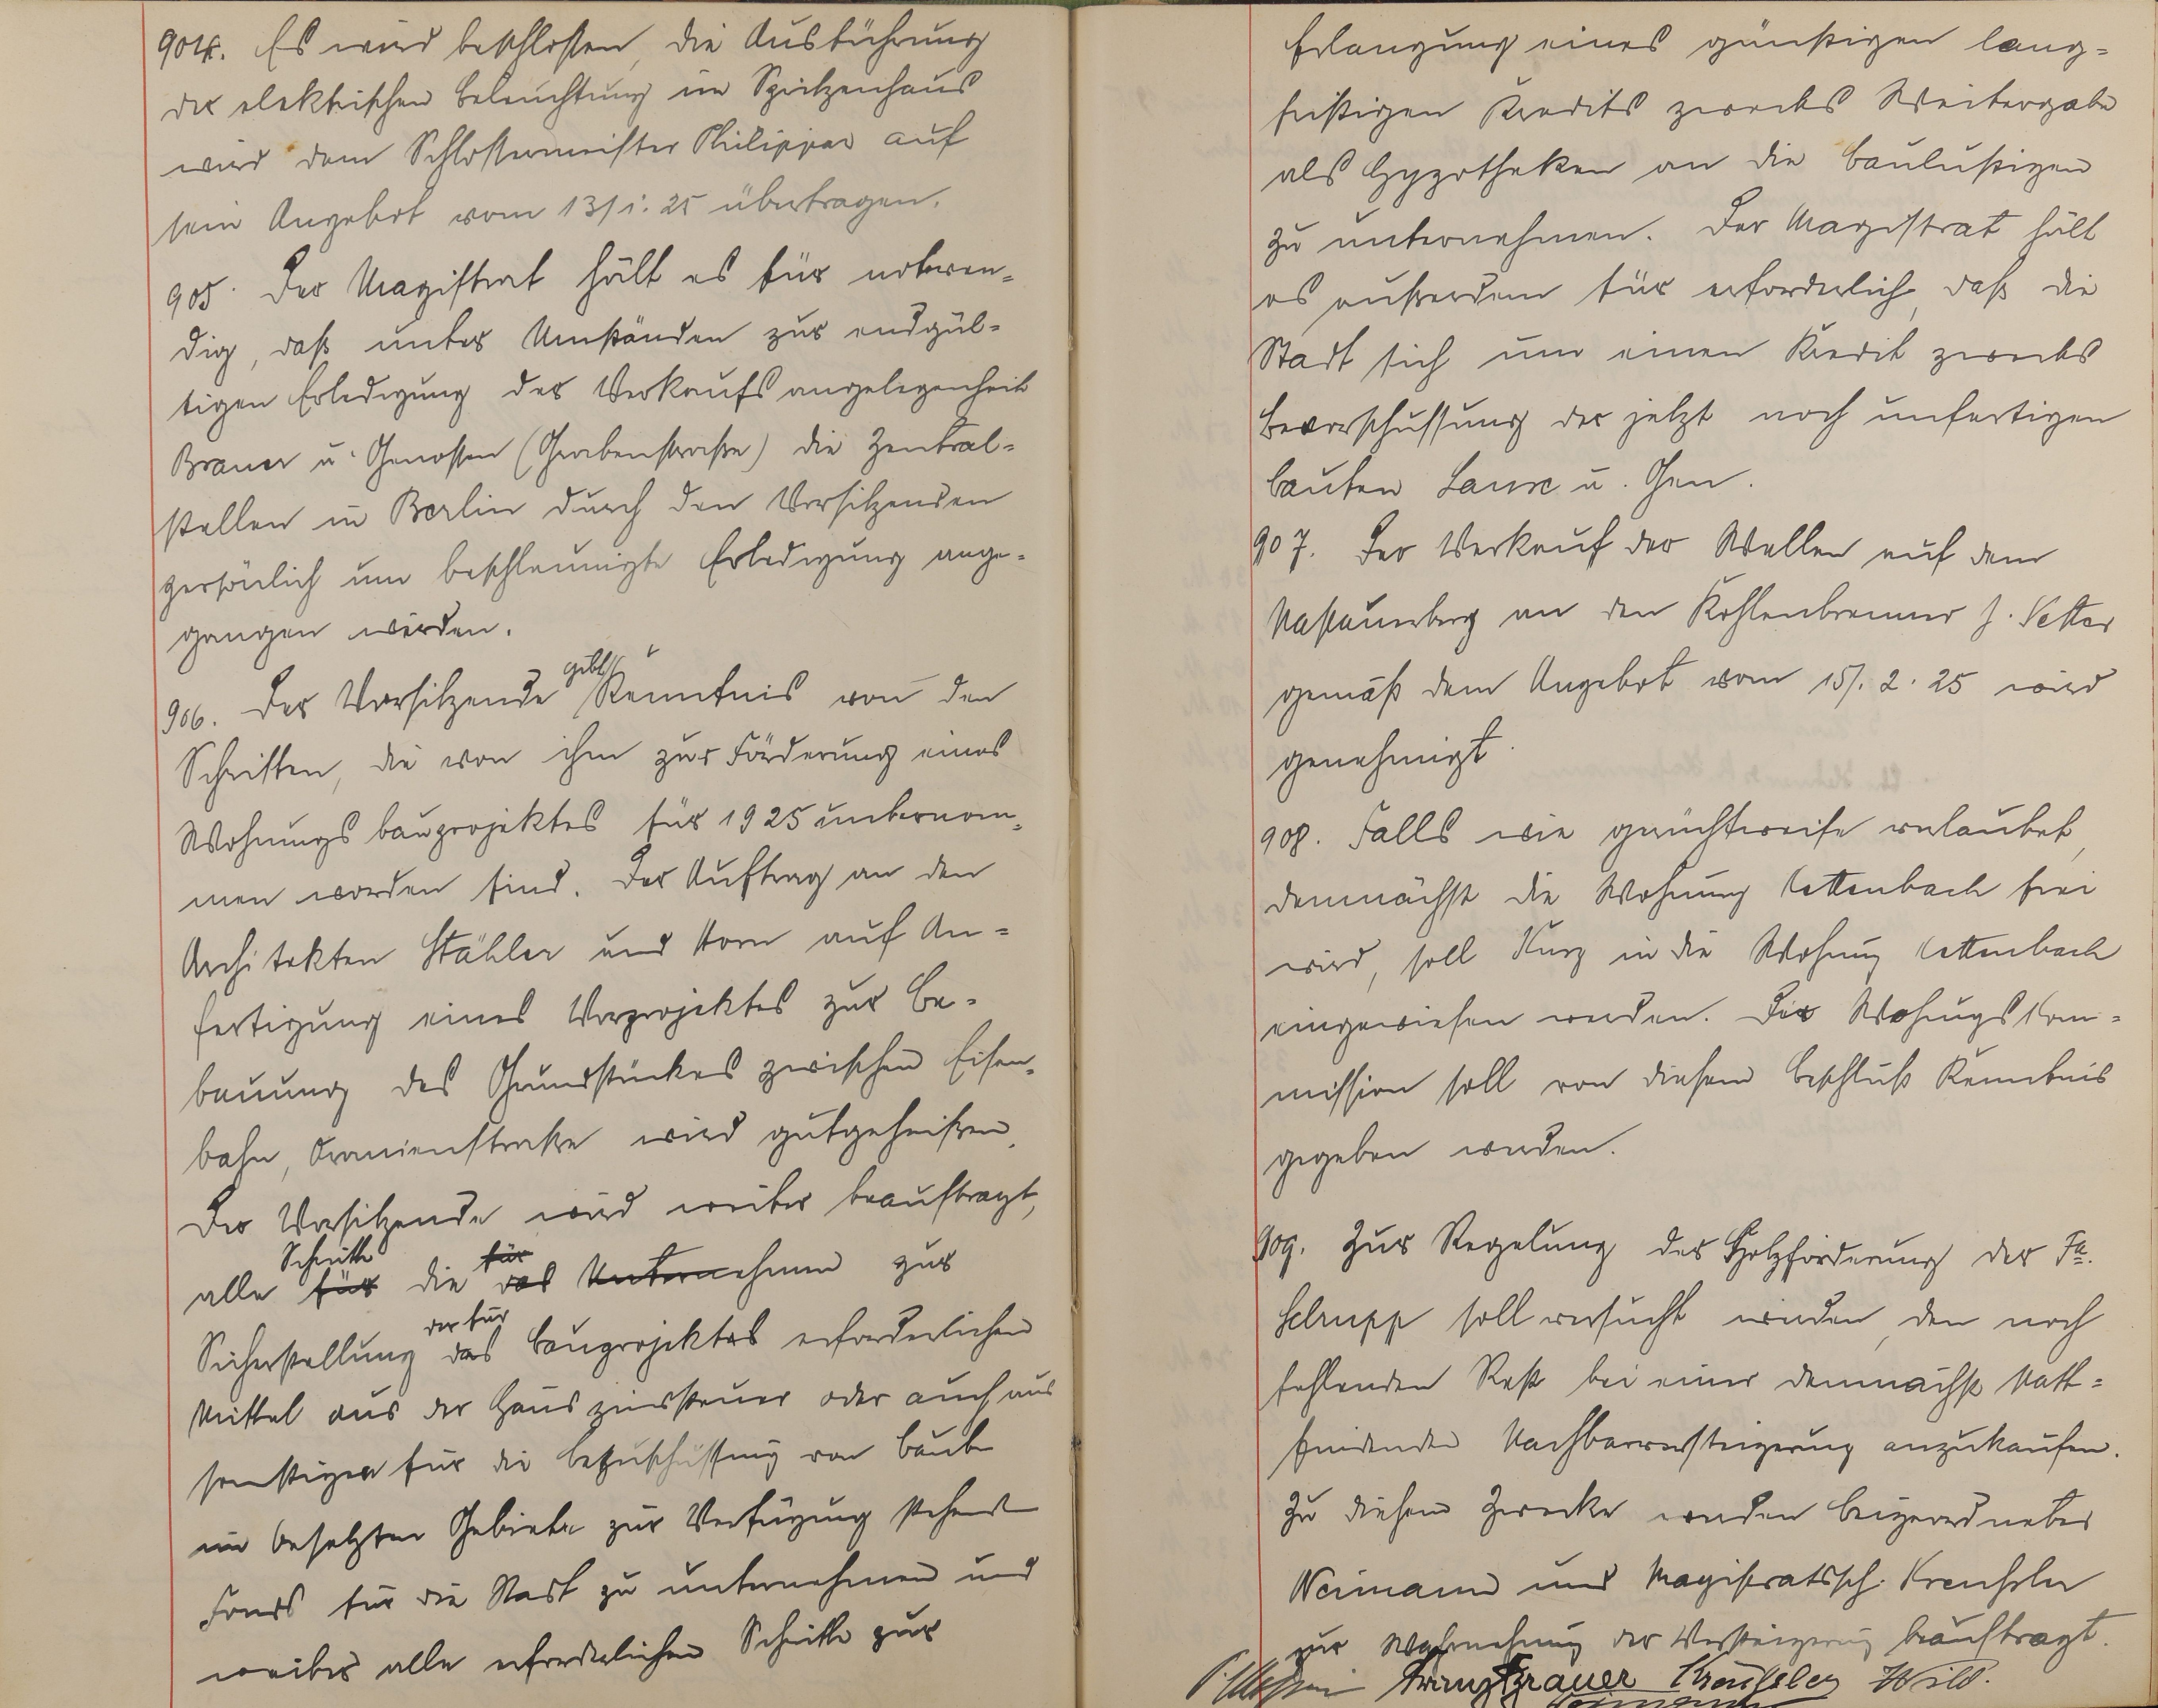 904. Es wird beschlossen, die Ausführung
der elektrischen Beleuchtung im Spritzenhaus
wird dem Schlossermeister Philippar auf
sein Angebot vom 13/1. 25 übertragen.
905. Der Magistrat hält es für notwen-
dig, daß unter Umständen zur endgül-
tigen Erledigung der Verkaufsangelegenheit
Brauer u. Genossen (Grabenstraße) die Zentral-
stellen in Berlin durch den Vorsitzenden
persönlich um beschleunigte Erledigung ange-
gangen werden.
906. Der Vorsitzende gibt Kenntnis von den
Schritten, die von ihm zur Förderung eines
Wohnungsbauprojektes für 1925 unternom-
men worden sind. Der Auftrag an den
Architekten Stähler und Horn auf An-
fertigung eines Vorprojektes zur Be-
bauung des Grundstückes zwischen Eisen-
bahn, Oranienstraße wird gutgeheißen.
Der Vorsitzende wird weiter beauftragt,
alle für Schritte die das für Unternehmen zur
Sicherstellung das der für Bauprojektes erforderlichen
Mittel aus der Hauszinssteuer oder auch aus
sonstigen für die Bezuschussung von Bauten
im besetzten Gebiete zur Verfügung stehend
Fonds für die Stadt zu unternehmen und
weiter alle erforderlichen Schritte zur
Erlangung eines günstigen lang-
fristigen Kredits zwecks Weitergabe
als Hypotheken an die Baulustigen
zu unternehmen. Der Magistrat hält
es außerdem für erforderlich, daß die
Stadt sich um einen Kredit zwecks
Bevorschussung der jetzt noch unfertigen
Bauten Laux u. Gen.
907. Der Verkauf der Wellen auf dem
Nassauerberg an den Kohlenbrenner J. Vetter
gemäß dem Angebot vom 15/. 2. 25 wird
genehmigt.
908. Falls wie gerüchtweise verlautet,
demnächst die Wohnung Kettenbach frei
wird, soll Kurz in die Wohnung Kettenbach
eingewiesen werden. Die Wohnungskom-
mission soll von diesem Beschluß Kenntnis
gegeben werden.
909. Zur Regelung der Holzforderung der Fa.
Schrupp soll versucht werden, den noch
fehlenden Rest bei einer demnächst statt-
findenden Nachbarversteigerung anzukaufen.
Zu diesem Zwecke werden Beigeordneter
Weimann und Magistratssch. Kreuseler
zur Wahrnehmung der Versteigerung beauftragt.
Franz Brauer Kreuseler Wild.
Weimann